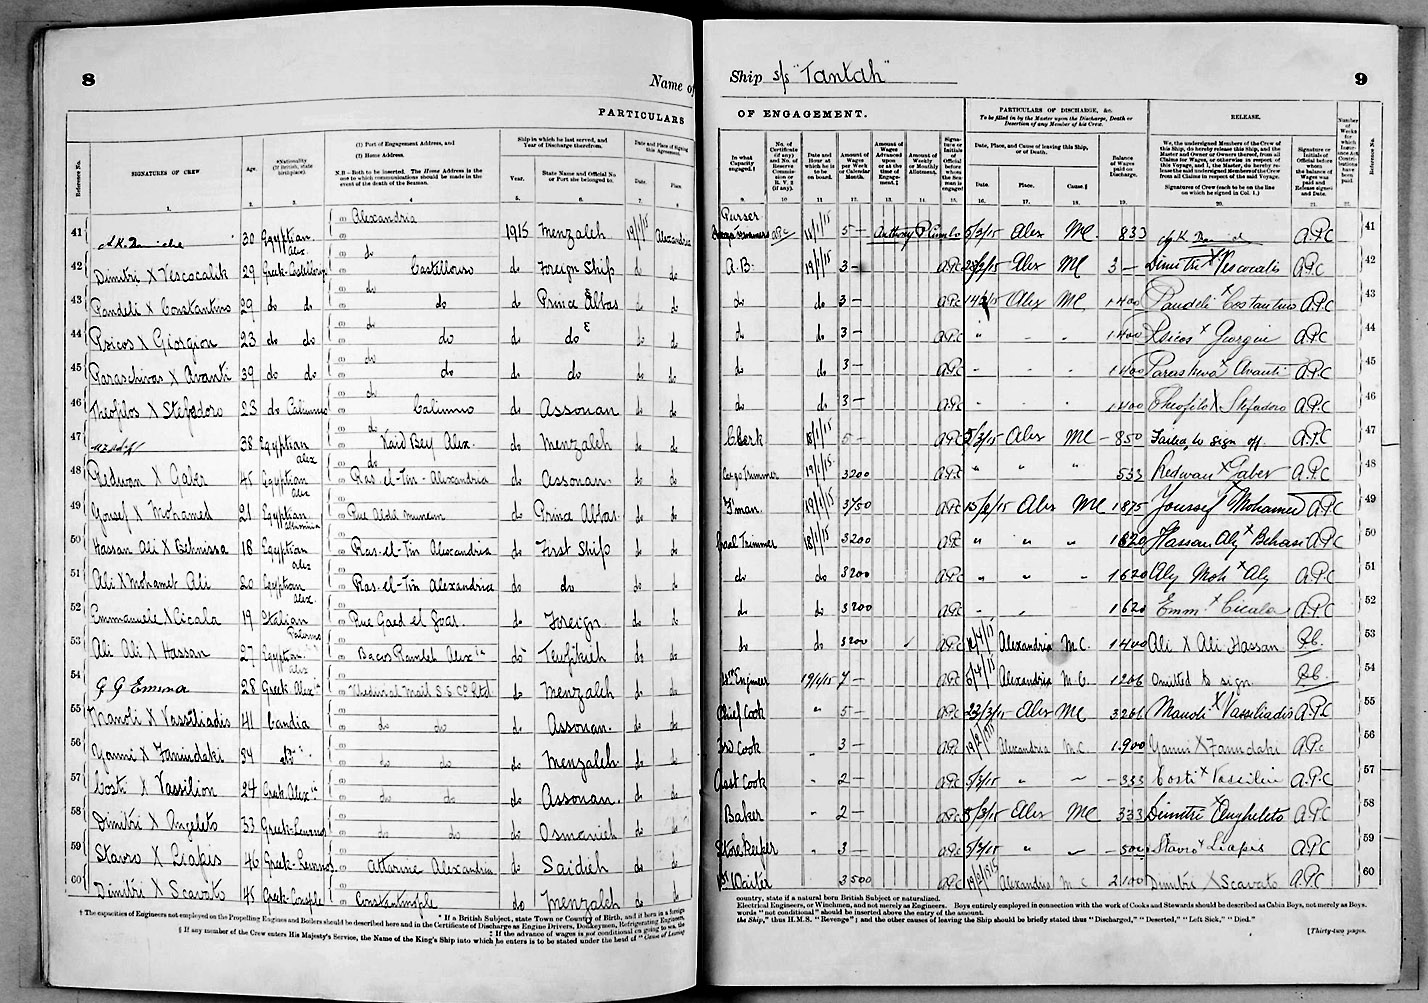 8
Name of
PARTICULARS
Reference No.
SIGNATURES OF CREW
Age.
*Nationality (If British, state birthplace).
(1) Port of Engagement Address, and
(2) Home Address.
N.B—Both to be inserted. The Home Address is the one to which communications should be made in the event of the death of the Seaman.
Ship in which he last served, and Year of Discharge therefrom.
Year.
State Name and Official No or Port she belonged to.
Date and Place of Signing this Agreement.
Date.
Place
1. 2. 3. 4. 5. 6. 7. 8
41 30 Egyptian Alex Alexandria 1915 Menzaleh 19/1/15 Alexandria
42 Dimitri X Vescocalik 29 Greek-Castellorizo do Castellorizo do Foreign Ship do do
43 Pandeli X Constantino 29 do do do do do Prince Abbas do do
44 Psicos X Giorgion 23 do do do do do do do do
45 Paraschivas X Avanti 39 do do do do do do do do
46 Theofilos X Stefadoro 23 do Calimno do Calimno do Assouan do do
47 38 Egyptian Alex do Kaid Bey Alex. do Menzaleh do do
48 Redwan X Gaber 45 Egyptian Alex do Ras-el-Tin-Alexandria do Assouan. do do
49 Yousef X Mohamed 21 Egyptian Rue Abdel Muneim do Prince Abbas do do
50 Hassan Ali X Behnissa 18 Egyptian Alex Ras-el-Tin Alexandria do First Ship do do
51 Ali X Mohamed Ali 20 Egyptian Alex. Ras-el-Tin Alexandria do do do do
52 Emmanuele X Cicala 19 Italian Palermo Rue Gaed el Goar do Foreign do do
53 Ali Ali X Hassan 27 Egyptian Alex Bacos Ramleh Alexia do Tewfikieh do do
54 G G Emma 28 Greek Alexia Khedivial Mail S S Co Ltd do Menzaleh do do
55 Manoli X Vassiliadis 41 Candia do do do Assouan. do do
56 Yanni X Fanindaki 34 do do do Menzaleh do do
57 Costi X Vassilion 24 Greek Alexia do do do Assouan. do do
58 Dimitri X Angeleto 33 Greek-Lemnos do do do Osmanieh do do
59 Stavro X Liapis 46 Greek-Lemnos Attarine Alexandria do Saidieh do do
60 Dimitri X Scavato 45 Greek-Constple Constantinople do Menzaleh do do
† The capacities of Engineers not employed on the Propelling Engines and Boilers should be described here and in the Certificate of Discharge as Engine Drivers, Donkeymen, Refrigerating Engineers,
* If a British Subject, state Town or Country of Birth, and if born in a foreign
‡ If the advance of wages is not conditional on going to sea, the
§ If any member of the Crew enters His Majesty's Service, the Name of the King's Ship into which he enters is to be stated under the head of "Cause of Leaving
Ship s/s "Tantah"
9
OF ENGAGEMENT.
PARTICULARS OF DISCHARGE, &c.
To be filled in by the Master upon the Discharge, Death or Desertion of any Member of his Crew.
RELEASE.
In what Capacity engaged.†
No. of Certificate (if any) and No. of Reserve Commission or R.V. 2 (if any).
Date and Hour at which he is to be on board.
Amount of Wages per Week or Calendar Month.
Amount of Wages Advanced upon or at the time of Engagement.‡
Amount of Weekly or Monthly Allotment.
Signature or Initials of Official before whom the Seaman is engaged
Date, Place, and Cause of leaving this Ship, or of Death.
Date. Place. Cause.§
Balance of Wages paid on Discharge.
We, the undersigned Members of the Crew of this Ship, do hereby release this Ship, and the Master and Owner or Owners thereof, from all Claims for Wages, or otherwise in respect of this Voyage, and I, the Master, do hereby release the said undersigned Members of the Crew from all Claims in respect of the said Voyage.
Signatures of Crew (each to be on the line on which he signed in Col. 1.)
Signature or Initials of Official before whom the balance of Wages was paid and Release signed and Date.
Number of Weeks for which Insurance Act Contributions have been paid.
Reference No.
9. 10. 11. 12. 13. 14. 15. 16. 17. 18. 19. 20. 21. 22.
Purser 18/1/15 5- 5/3/15 Alex MC. 833 A.P.C 41
A.B. 19/1/15 3- A.P.C 23/2/15 Alex MC 3- Dimitri X Vescocalis A.P.C 42
do do 3- A.P.C Alex MC 1400 Pandeli X Costantino A.P.C 43
do do 3- A.P.C " - - 1400 Psicos X Giorgiu A.P.C 44
do do 3- A.P.C - - - 1400 Paraskeva X Avanti A.P.C 45
do do 3- A.P.C - - - 1400 Theofilo X Stefadoro A.P.C 46
Clerk 18/1/15 5- A.P.C 5/3/15 Alex MC 850 Failed to sign off. A.P.C 47
Cargo Trimmer 19/1/15 3200 A.P.C " " " 533 Redwan X Gaber A.P.C 48
F'man. 19/1/15 3750 A.P.C 15/2/15 Alex MC 1875 Youssef X Mohamed A.P.C 49
Coal Trimmer 18/1/15 3200 A.P.C " " " 1620 Hassan Aly X Behasi A.P.C 50
do do 3200 A.P.C " " - 1620 Aly Moh X Aly A.P.C 51
do do 3200 A.P.C - " 1620 Emm. X Cicala A.P.C 52
do do 3200 A.P.C Alexandria M.C. 1400 Ali X Ali Hassan 53
Engineer 19/1/15 7- A.P.C 6/4/15 Alexandria M.C. 1206 Omitted to sign 54
Chief Cook " 5- A.P.C 23/3/15 Alex MC 3266 Manoli X Vassiliadis A.P.C 55
3rd Cook - 3- A.P.C Alexandria M.C. 1.900 Yanni X Fanindaki A.P.C 56
Asst Cook - 2- A.P.C 5/3/15 " - 333 Costi X Vassiliu A.P.C 57
Baker " 2- A.P.C 5/3/15 Alex MC 333 Dimitri X Angheleto A.P.C 58
Storekeeper - 3- A.P.C 5/3/15 " - 500 Stavro X Liapis A.P.C 59
1st Waiter 3500 A.P.C Alexandria M.C 2.100 Dimitri X Scavato A.P.C 60
country, state if a natural born British Subject or naturalized.
Electrical Engineers, or Winchmen, and not merely as Engineers. Boys entirely employed in connection with the work of Cooks and Stewards should be described as Cabin Boys, not merely as Boys.
words "not conditional" should be inserted above the entry of the amount.
the Ship," thus H.M.S. "Revenge"; and the other causes of leaving the Ship should be briefly stated thus "Discharged," "Deserted," "Left Sick," "Died."
[Thirty-two pages.